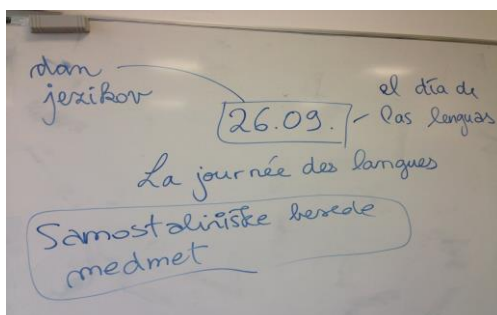 dan
jezikov
26.09.
el día de
las lenguas
La journée des langues
Samostalniške besede
medmet